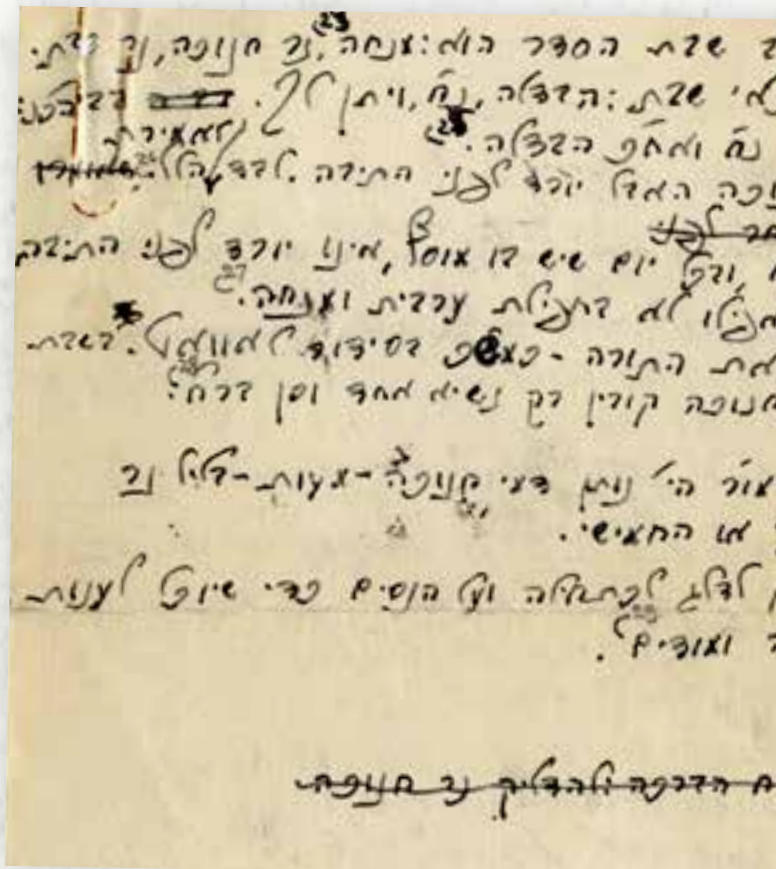 ב שבת הסדר הוא: מנחה, (23 נר חנוכה, נר שבת.
אי שבת: הבדלה, נ"ח, ויתן לך.
נ"ח ואח"כ הבדלה. (25
וכה האבל יורד לפני התיבה. לבד להלל. (26
לפני
וכל יום שיש בו מוסף, אינו יורד לפני התיבה
אפילו לא בתפילת ערבית ומנחה. (27
את התורה - כמ"ש בסידור לאוואוט. בשבת
חנוכה קורין רק נשיא אחד וכן בר"ח. (28
מו"ר הי' נותן דמי חנוכה - מעות - בליל נר
או החמישי.
לדלג לכתחילה ועל הנסים כדי שיוכל לענות
ומודים. (29
הברכה ולהדליק נר חנוכה